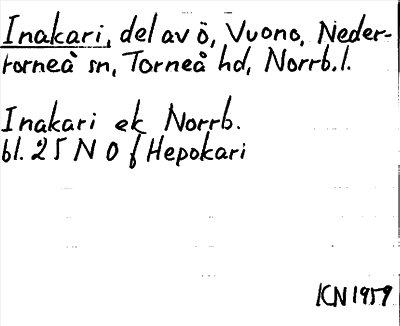 Inakari, del av ö, Vuono, Neder-
torneå sn, Torneå hd, Norrb.l.
Inakari ek Norrb.
bl. 25 N O f Hepokari
KN 1959